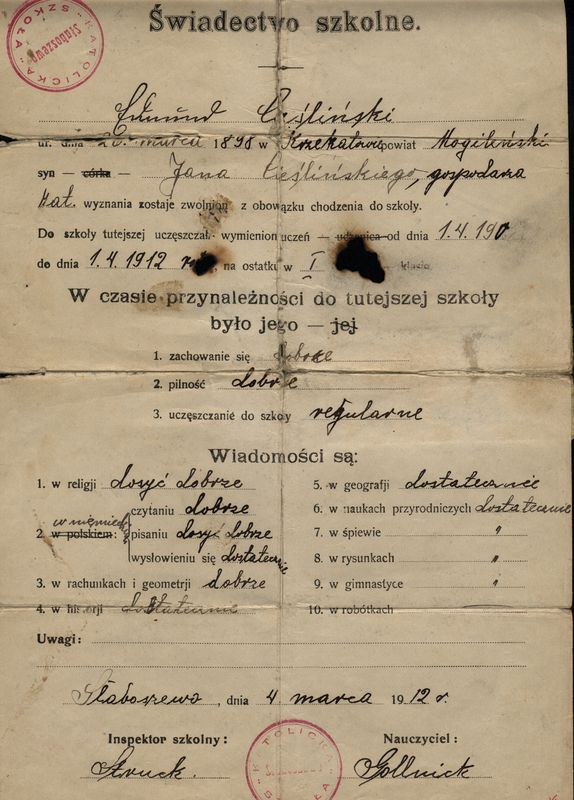 KATOLICKA SZKOŁA
Słaboszewo
Świadectwo szkolne.
Edmund Cieśliński
ur. dnia 20. marca 1898 w powiat Mogileński
syn — córka — Jana Cieślińskiego, gospodarza
kat. wyznania zostaje zwolnion z obowązku chodzenia do szkoły.
Do szkoły tutejszej uczęszczał wymienion uczeń — uczenica od dnia 1.4.190
do dnia 1.4.1912 na ostatku w I klasie
W czasie przynależności do tutejszej szkoły
było jego — jej
1. zachowanie się dobrze
2. pilność dobrze
3. uczęszczanie do szkoły regularne
Wiadomości są:
1. w religji dosyć dobrze
czytaniu dobrze
w niemieck
2. w polskiem: pisaniu dosyć dobrze
wysłowieniu się dostatecznie
3. w rachunkach i geometrji dobrze
4. w historji dostatecznie
5. w geografji dostatecznie
6. w naukach przyrodniczych dostatecznie
7. w śpiewie "
8. w rysunkach "
9. w gimnastyce "
10. w robótkach
Uwagi:
Słaboszewo, dnia 4 marca 1912 r.
Inspektor szkolny: Nauczyciel:
Struck. Gollnick
KATOLICKA